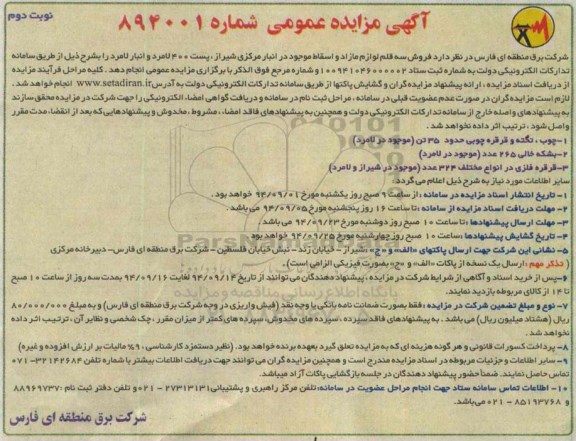 نوبت دوم
آگهی مزایده عمومی شماره ۸۹۴۰۰۱
شرکت برق منطقه ای فارس در نظر دارد فروش سه قلم لوازم مازاد و اسقاط موجود در انبار مرکزی شیراز، پست ۴۰۰ لامرد و انبار لامرد را بشرح ذیل از طریق سامانه
تدارکات الکترونیکی دولت به شماره ثبت ستاد ۱۰۰۹۴۱۰۴۶۰۰۰۰۰۲ و شماره مرجع فوق الذکر با برگزاری مزایده عمومی انجام دهد. کلیه مراحل فرآیند مزایده
از دریافت اسناد مزایده ، ارائه پیشنهاد مزایده گران و گشایش پاکتها از طریق سامانه تدارکات الکترونیکی دولت به آدرس www.setadiran.ir انجام خواهد شد.
لازم است مزایده گران در صورت عدم عضویت قبلی در سامانه ، مراحل ثبت نام در سامانه و دریافت گواهی امضاء الکترونیکی را جهت شرکت در مزایده محقق سازند
به پیشنهادهای واصله خارج از سامانه تدارکات الکترونیکی دولت و همچنین به پیشنهادهای فاقد امضاء ، مشروط ، مخدوش و پیشنهادهایی که بعد از انقضاء مدت مقرر
واصل شود ، ترتیب اثر داده نخواهد شد.
۱-چوب ، تخته و قرقره چوبی حدود ۳۵ تن (موجود در لامرد)
۲-بشکه خالی ۲۶۵ عدد (موجود در لامرد)
۳-قرقره فلزی در انواع مختلف ۳۲۴ عدد (موجود در شیراز و لامرد)
سایر اطلاعات مورد نیاز به شرح ذیل اعلام می گردد:
۱- تاریخ انتشار اسناد مزایده در سامانه : از ساعت ۹ صبح روز یکشنبه مورخ ۹۴/۰۹/۰۱ خواهد بود.
۲- مهلت دریافت اسناد مزایده از سامانه : تا ساعت ۱۶ روز پنجشنبه مورخ ۹۴/۰۹/۰۵ می باشد.
۳- مهلت ارسال پیشنهادها : تا ساعت ۱۰ صبح روز دوشنبه مورخ ۹۴/۰۹/۲۳ می باشد.
۴- تاریخ گشایش پیشنهادها : ساعت ۱۰ صبح روز چهارشنبه مورخ ۹۴/۰۹/۲۵ خواهد بود.
۵- نشانی این شرکت جهت ارسال پاکتهای «الف» و «ج» : شیراز- خیابان زند - نبش خیابان فلسطین - شرکت برق منطقه ای فارس- دبیرخانه مرکزی
تذکر مهم : ارسال یک نسخه از پاکات «الف» و «ج» بصورت فیزیکی الزامی است).
۶-پس از خرید اسناد و آگاهی از شرایط شرکت در مزایده ، پیشنهاد دهندگان می توانند از تاریخ ۹۴/۰۹/۱۴ لغایت ۹۴/۰۹/۱۶ بمدت سه روز از ساعت ۱۰ صبح
تا ۱۴ از کالای مربوطه بازدید نمایند.
۷- نوع و مبلغ تضمین شرکت در مزایده : فقط بصورت ضمانت نامه بانکی یا وجه نقد (فیش واریزی در وجه شرکت برق منطقه ای فارس) و به مبلغ ۸۰/۰۰۰/۰۰۰
ریال (هشتاد میلیون ریال) می باشد. به پیشنهادهای فاقد سپرده ، سپرده های مخدوش، سپرده های کمتر از میزان مقرر ، چک شخصی و نظایر آن ، ترتیب اثر داده
نخواهد شد.
۸- پرداخت کسورات قانونی و هر گونه هزینه ای که به مزایده تعلق گیرد بعهده برنده خواهد بود. (نظیر دستمزد کارشناسی ، ۹% مالیات بر ارزش افزوده و غیره)
۹- سایر اطلاعات و جزئیات مربوطه در اسناد مزایده مندرج است و همچنین مزایده گران می توانند جهت دریافت اطلاعات بیشتر با شماره تلفن ۳۲۱۴۲۶۸۴-۰۷۱
تماس حاصل نمایند. ضمناً حضور پیشنهاد دهندگان در جلسه بازگشایی پاکات آزاد میباشد.
۱۰- اطلاعات تماس سامانه ستاد جهت انجام مراحل عضویت در سامانه: تلفن مرکز راهبری و پشتیبانی ۲۷۳۱۳۱۳۱ - ۰۲۱ و تلفن دفتر ثبت نام ۸۸۹۶۹۷۳۷
و ۸۵۱۹۳۷۶۸ - ۰۲۱ می باشد.
شرکت برق منطقه ای فارس